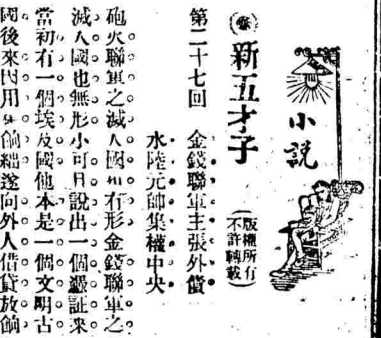 小說
新五才子
版權所有
不許轉載
第二十七回 金錢聯軍主張外債
水陸元帥集權中央
砲火聯軍之滅人國有形金錢聯軍之
滅人國也無形小可且說出一個憑証來
當初有一個埃及國他本是一個文明古
國後來因用餉絀遂向外人借貸放餉